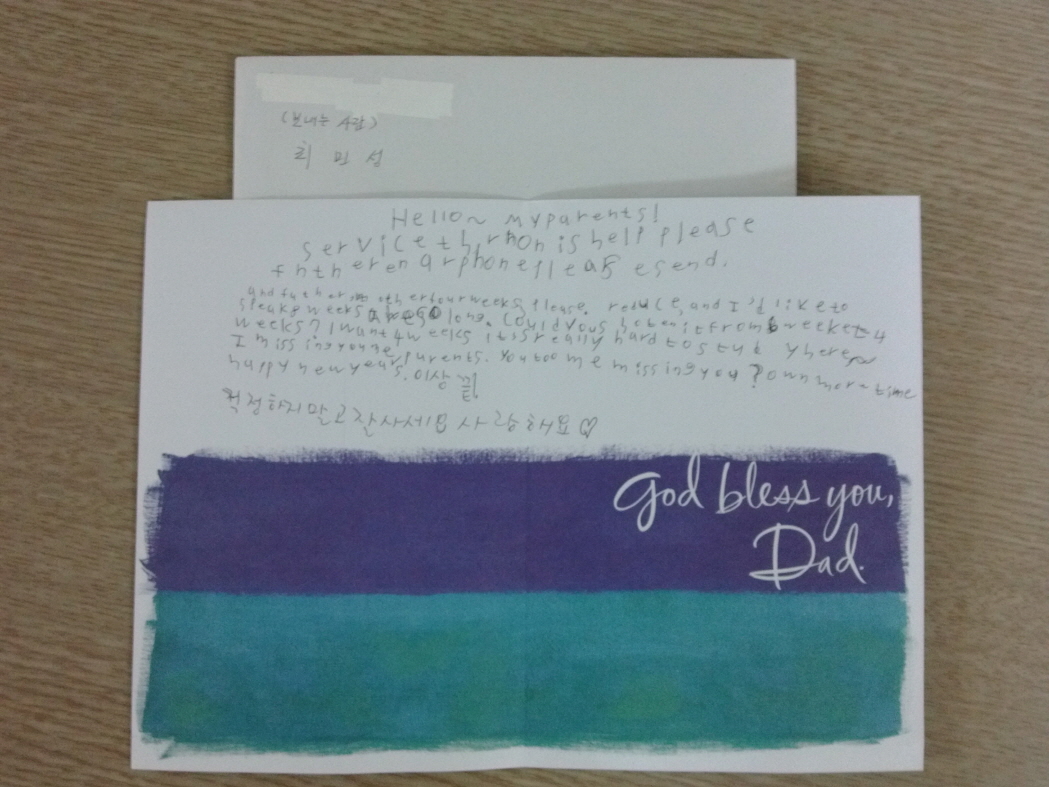 (보내는 사람)
최 민 섭
Hello~ my parents!
service is help please
phone please send.
and father other four weeks please. reduce, and I'd like to
speak 8 weeks long. Could you from 8 week to 4
weeks? I want 4 weeks it is really hard to study here
I missing you parents. You too me missing you? own more time
happy new years. 이상 끝
걱정하지말고 잘사세요 사랑해요♡
God bless you,
Dad.